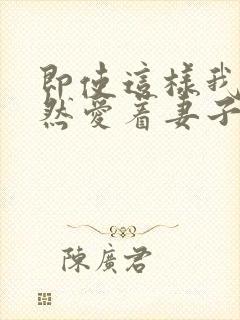 即使這樣我
然愛着妻子
陳廣君